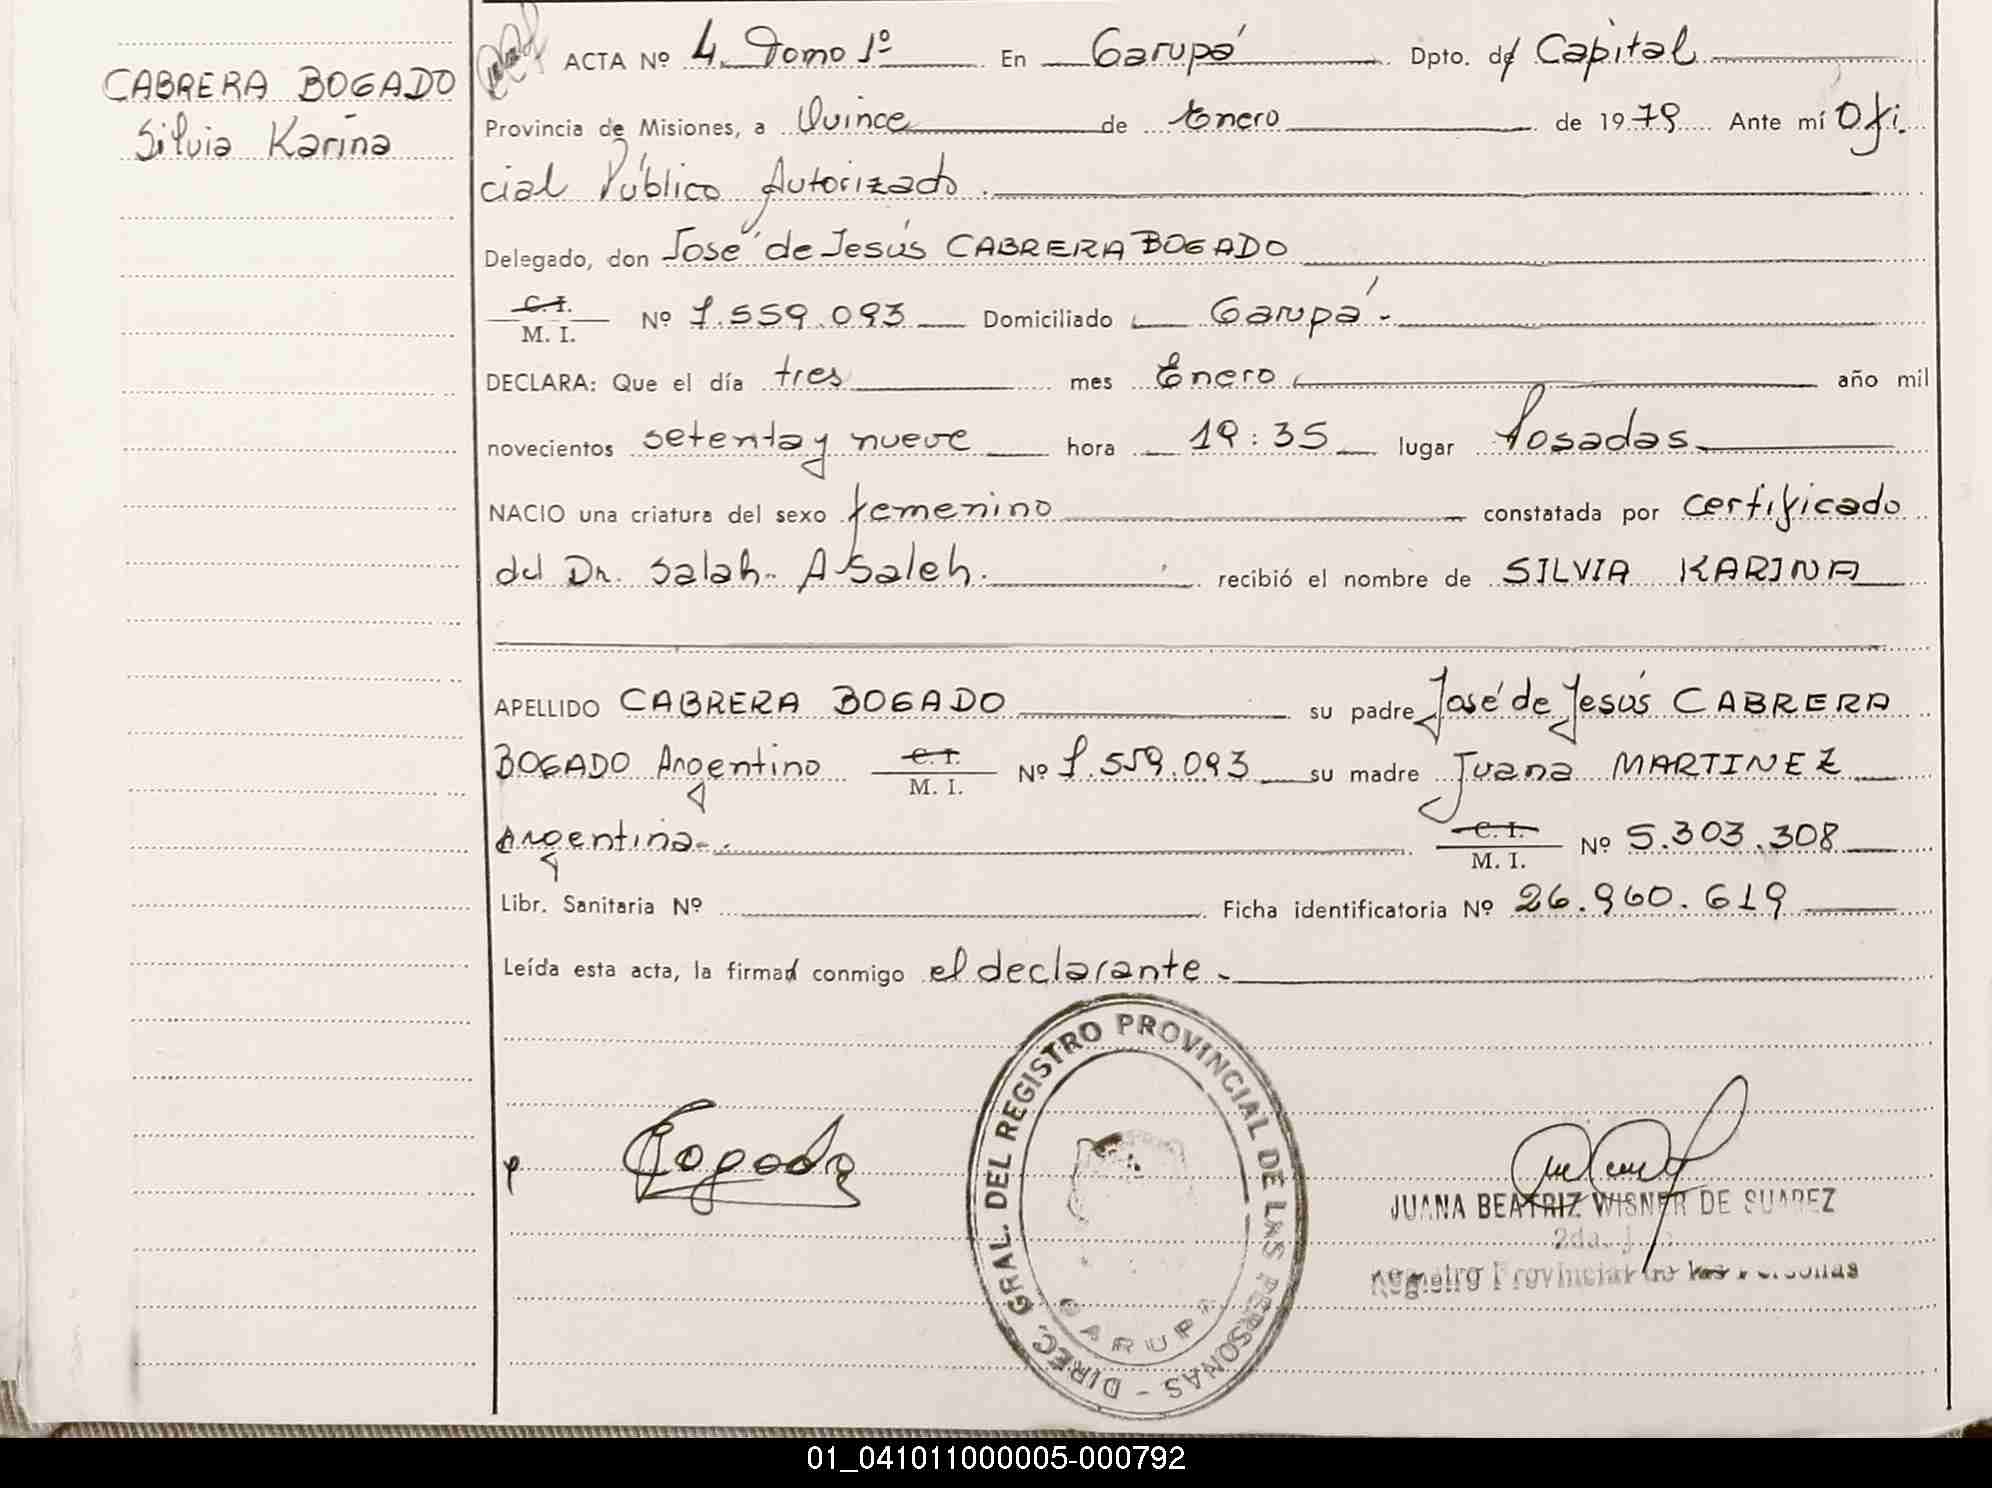 CABRERA BOGADO
Silvia Karina
ACTA Nº 4. Tomo 1º En Garupá Dpto. de Capital
Provincia de Misiones, a Quince de Enero de 1979 Ante mí Ofi.
cial Público Autorizado.
Delegado, don José de Jesús CABRERA BOGADO
C. I.
M. I. Nº 7.559.093 Domiciliado Garupá.-
DECLARA: Que el día tres mes Enero año mil
novecientos setenta y nueve hora 19:35 lugar Posadas
NACIO una criatura del sexo femenino constatada por certificado
del Dr. Salah. A Saleh. recibió el nombre de SILVIA KARINA
APELLIDO CABRERA BOGADO su padre José de Jesús CABRERA
BOGADO Argentino C. I.
M. I. Nº 7.559.093 su madre Juana MARTINEZ
Argentina-. C. I.
M. I. Nº 5.303.308
Libr. Sanitaria Nº Ficha identificatoria Nº 26.960.619
Leída esta acta, la firman conmigo el declarante.-
DIREC. GRAL. DEL REGISTRO PROVINCIAL DE LAS PERSONAS -
GARUPA
Bogado
JUANA BEATRIZ WISNER DE SUAREZ
2da.
Registro Provincial de las Personas
01_041011000005-000792